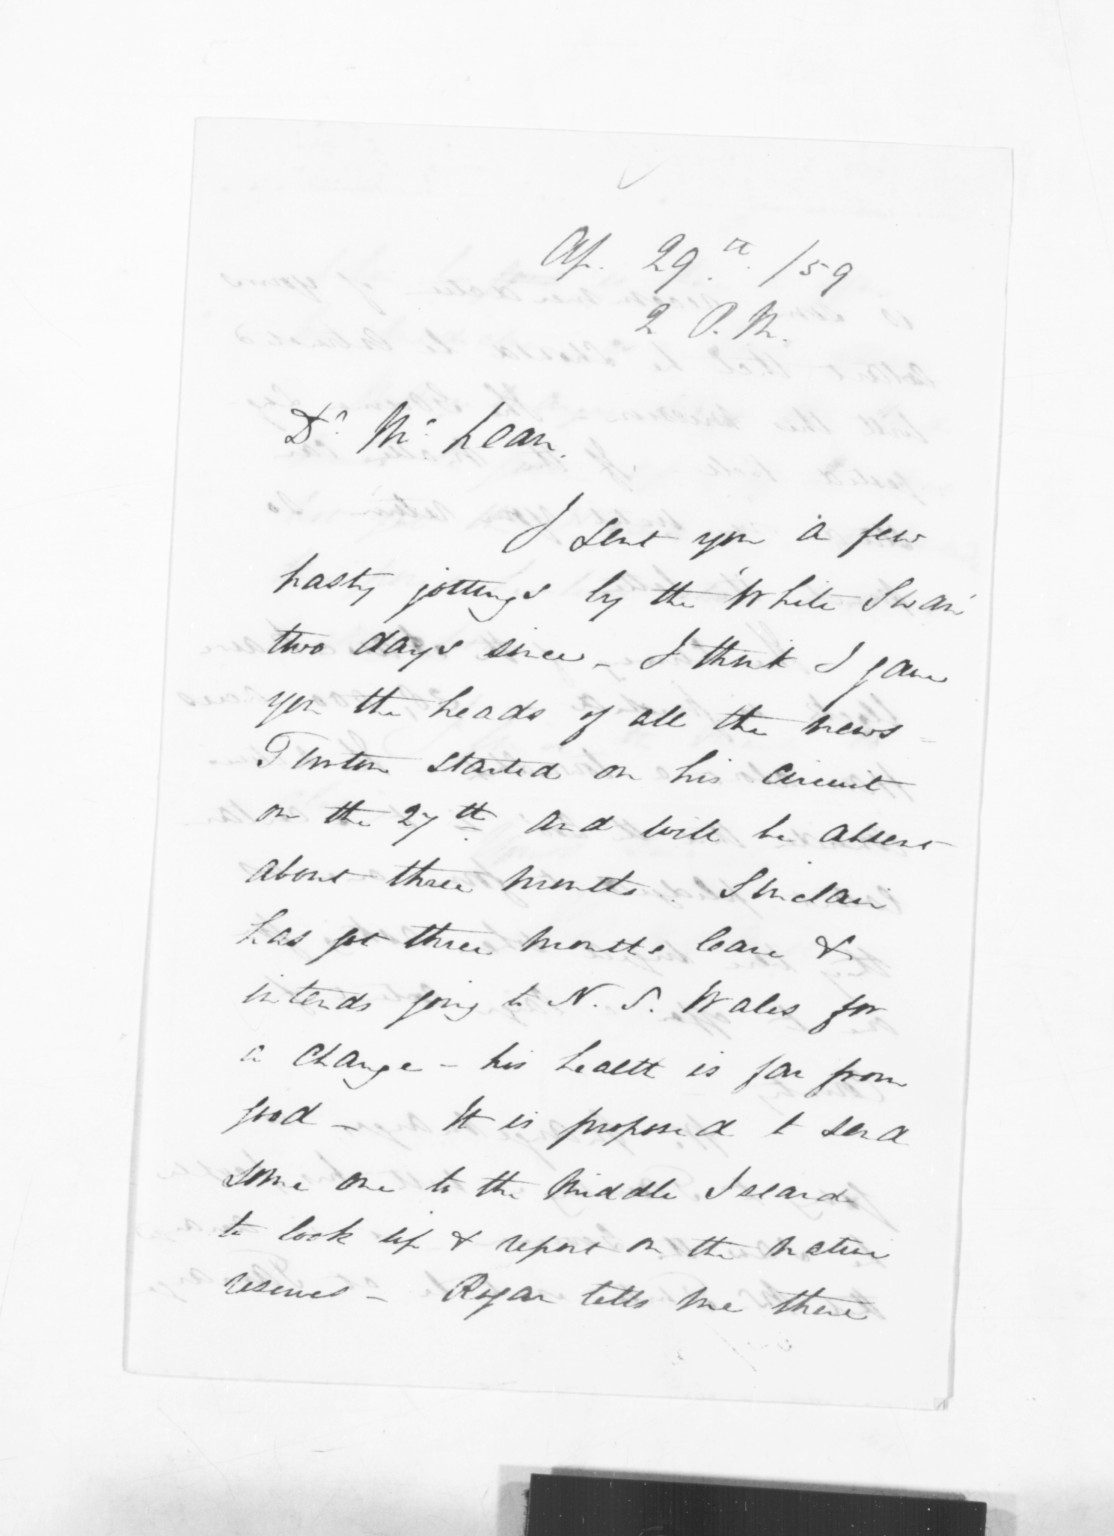 Ap. 29th. /59
2 P.M.
Dr. McLean.
I sent you a few
hasty jottings by the 'White Swan'
two days since - I think I gave
you the heads of all the news -
Fenton started on his circuit
on the 27th and will be absent
about three months. Sinclair
has got three months leave &
intends going to N. S. Wales for
a change - his health is far from
good - It is proposed to send
some one to the Middle Island
to look up & report on the native
reserves - Rogan tells me there